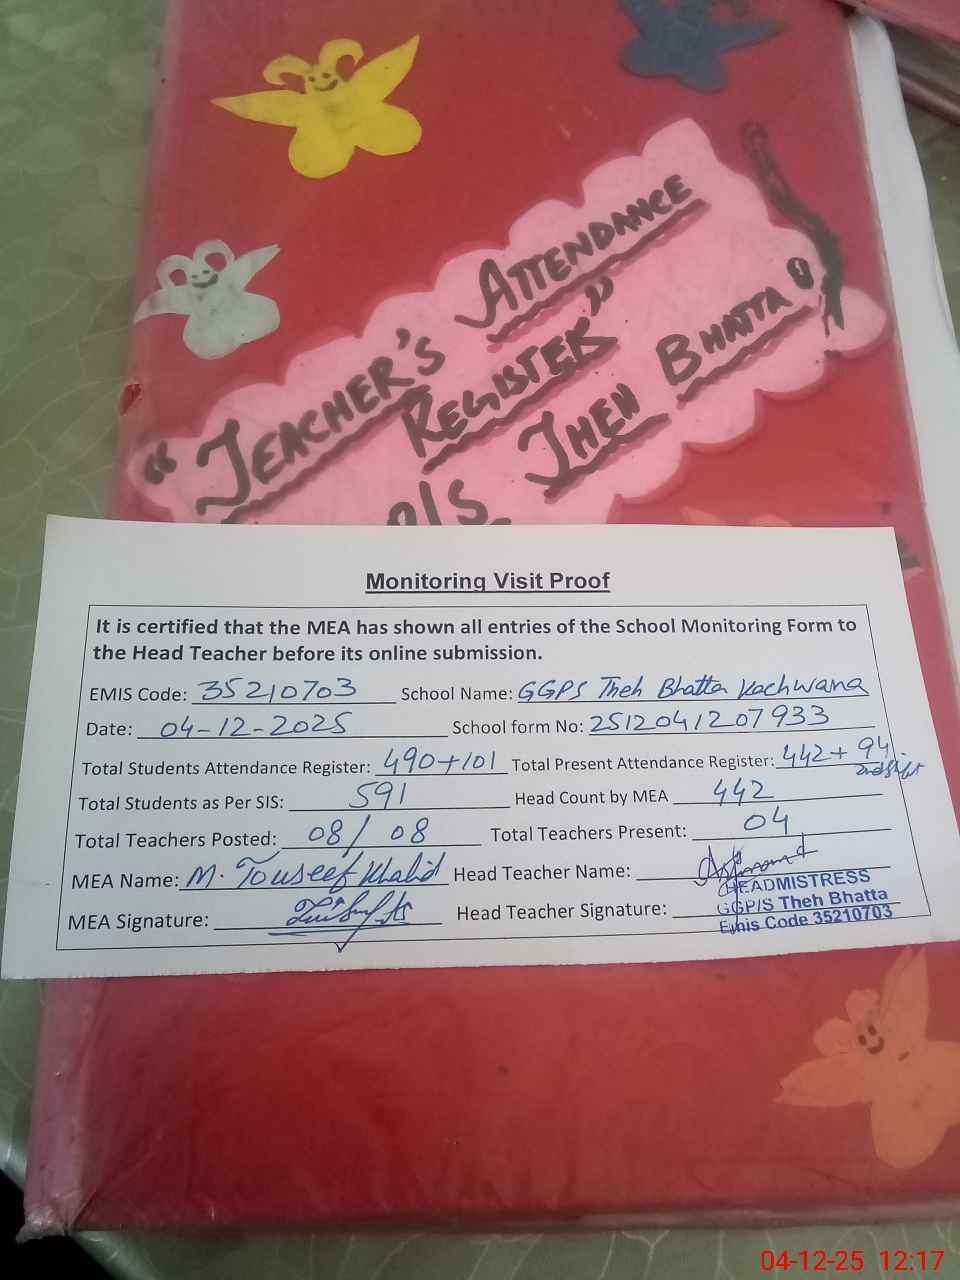 "TEACHER'S ATTENDANCE
REGISTER"
P/S THEH BHATTA"
Monitoring Visit Proof
It is certified that the MEA has shown all entries of the School Monitoring Form to
the Head Teacher before its online submission.
EMIS Code: 35210703 School Name: GGPS Theh Bhatta Kachwana
Date: 04-12-2025 School form No: 2512041207933
Total Students Attendance Register: 490+101 Total Present Attendance Register: 442+94
2nd Shift
Total Students as Per SIS: 591 Head Count by MEA 442
Total Teachers Posted: 08/08 Total Teachers Present: 04
MEA Name: M. Touseef Khalid Head Teacher Name:
MEA Signature: Head Teacher Signature:
HEADMISTRESS
GGP/S Theh Bhatta
Emis Code 35210703
04-12-25 12:17